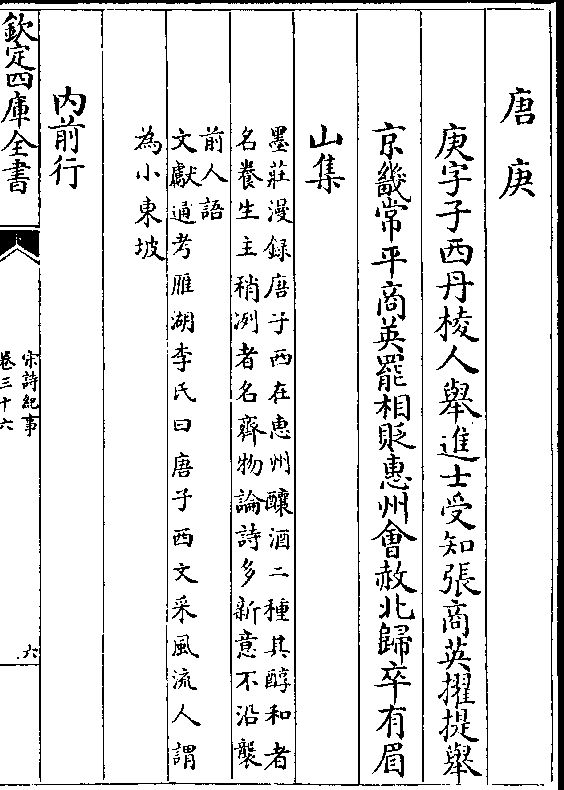 唐庚
庚字子西丹棱人舉進士受知張商英擢提舉
京畿常平商英罷相貶惠州會赦北歸卒有眉
山集
墨莊漫錄唐子西在惠州釀酒二種其醇和者
名養生主稍冽者名齊物論詩多新意不沿襲
前人語
文獻通考雁湖李氏曰唐子西文采風流人謂
為小東坡
內前行
欽定四庫全書
宋詩紀事
卷三十六
六